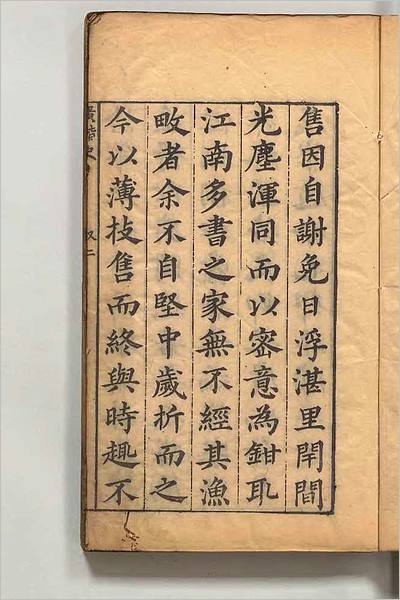 售因自謝免日浮湛里閈間
光塵渾同而以密意為鉗耴
江南多書之家無不經其漁
畋者余不自堅中歲折而之
今以薄技售而終與時趣不